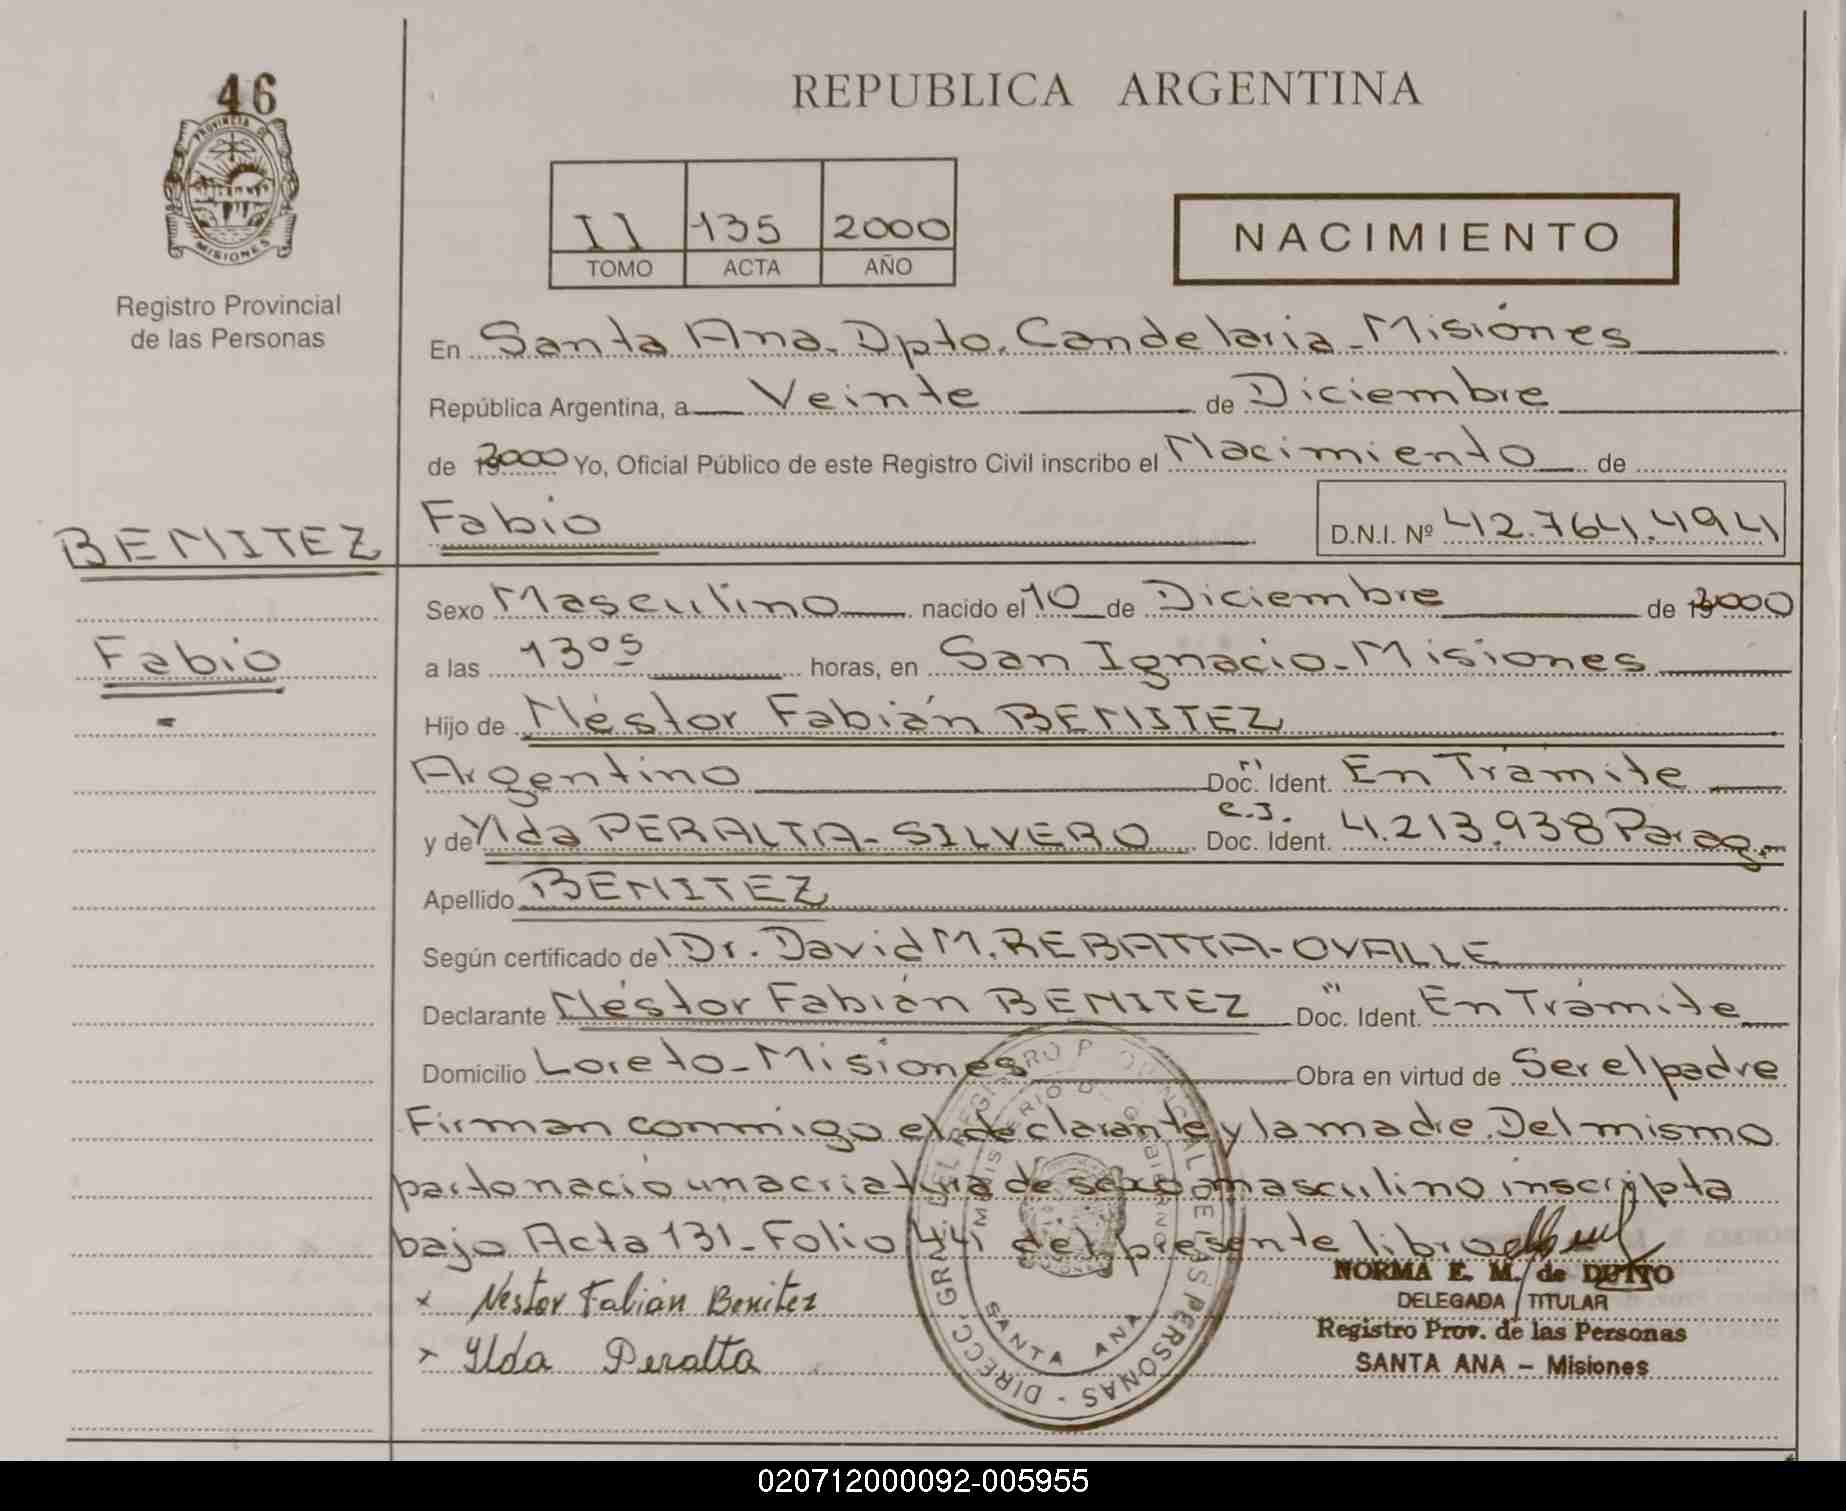 46
PROVINCIA DE
MISIONES
Registro Provincial
de las Personas
REPUBLICA ARGENTINA
II 135 2000
TOMO ACTA AÑO
NACIMIENTO
En Santa Ana. Dpto. Candelaria - Misiones
República Argentina, a Veinte de Diciembre
de 2000 Yo, Oficial Público de este Registro Civil inscribo el Nacimiento de
BENITEZ
Fabio
Fabio
D.N.I. Nº 42.764.494
Sexo Masculino nacido el 10 de Diciembre de 2000
a las 13 05 horas, en San Ignacio - Misiones
Hijo de Néstor Fabián BENITEZ
Argentino Doc. Ident. En Trámite
y de Ylda PERALTA - SILVERO c.I. Doc. Ident. 4.213.938 Parag.
Apellido BENITEZ
Según certificado del Dr. David M. REBATTA - OVALLE
Declarante Néstor Fabián BENITEZ Doc. Ident. En Trámite
Domicilio Loreto - Misiones Obra en virtud de Ser el padre
Firman conmigo el declarante y la madre. Del mismo
parto nació una criatura de sexo masculino inscripta
bajo Acta 131 - Folio 44 del presente libro
x Nestor Fabian Benitez
x Ylda Peralta
DIRECC. GRAL. DEL REGISTRO PROVINCIAL DE LAS PERSONAS -
MINISTERIO DE GOBIERNO
SANTA ANA
NORMA E. M. de DUTTO
DELEGADA TITULAR
Registro Prov. de las Personas
SANTA ANA - Misiones
020712000092-005955